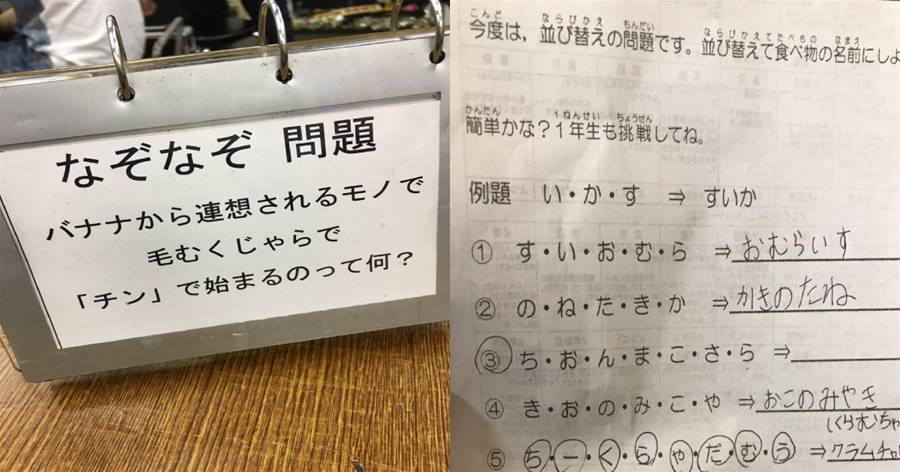 なぞなぞ 問題
バナナから連想されるモノで
毛むくじゃらで
「チン」で始まるのって何？
こんど ならびかえ もんだい ならびかえてたべもの なまえ
今度は，並び替えの問題です。並び替えて食べ物の名前にしよ
かんたん 1ねんせい ちょうせん
簡単かな？1年生も挑戦してね。
例題 い・か・す ⇒ すいか
① す・い・お・む・ら ⇒ おむらいす
② の・ね・た・き・か ⇒ かきのたね
③ ち・お・ん・ま・こ・さ・ら ⇒
④ き・お・の・み・こ・や ⇒ おこのみやき
くらむちゃ
⑤ ち・ー・く・ら・ゃ・だ・む・う ⇒ クラムチャ